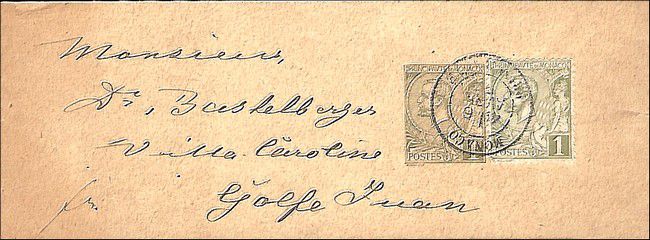 Monsieur,
Dr, Bastelberger
Villa Caroline
fr. Golfe Juan
PRINCIPAUTE DE MONACO
POSTES 1
PRINCIPAUTE DE MONACO
POSTES 1
MONACO